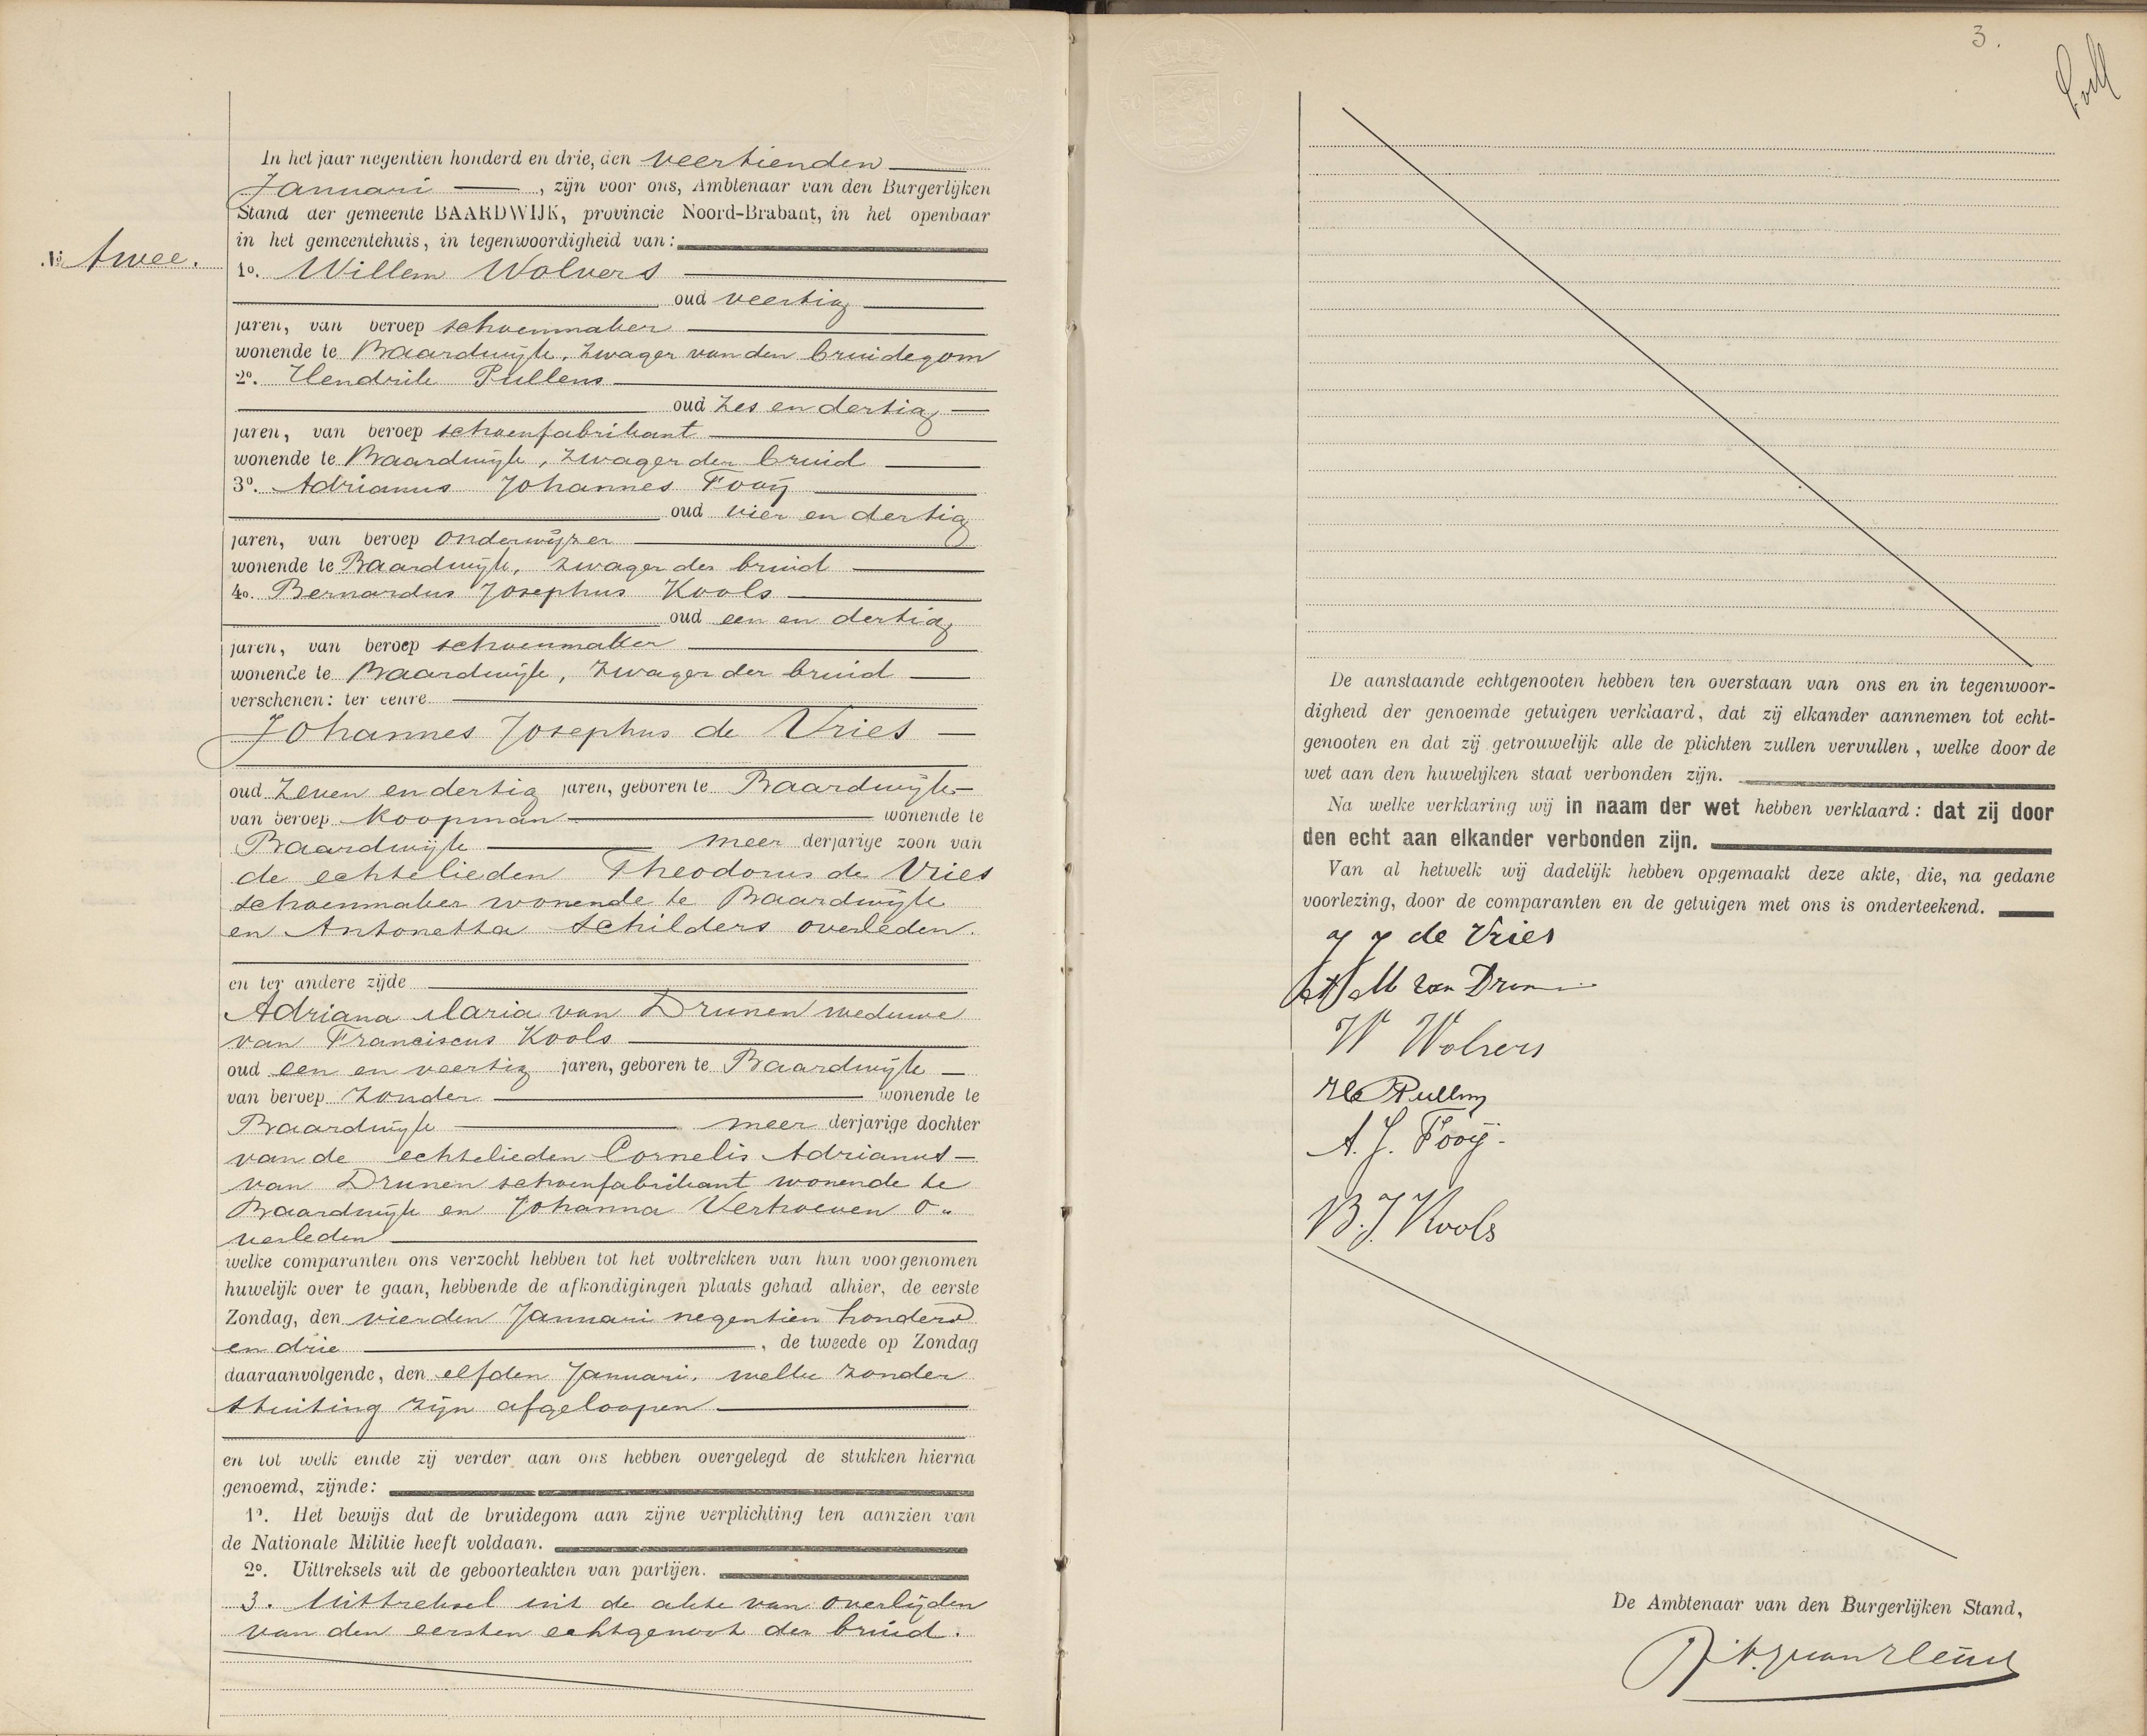 In het jaar negentien honderd en drie, den veertienden
Januari, zijn voor ons, Ambtenaar van den Burgerlijken
Stand der gemeente BAARDWIJK, provincie Noord-Brabant, in het openbaar
in het gemeentehuis, in tegenwoordigheid van:
No. twee.
1o. Willem Wolvers
oud veertig
jaren, van beroep schoenmaker
wonende te Baardwijk, zwager van den bruidegom
2o. Hendrik Pullens
oud zes en dertig
jaren, van beroep schoenfabrikant
wonende te Baardwijk, zwager der bruid
3o. Adrianus Johannes Fooij
oud vier en dertig
jaren, van beroep onderwijzer
wonende te Baardwijk, zwager der bruid
4o. Bernardus Josephus Kools
oud een en dertig
jaren, van beroep schoenmaker
wonende te Baardwijk, zwager der bruid
verschenen: ter eenre
Johannes Josephus de Vries
oud zeven en dertig jaren, geboren te Baardwijk
van beroep koopman wonende te
Baardwijk meer derjarige zoon van
de echtelieden Theodorus de Vries
schoenmaker wonende te Baardwijk
en Antonetta Schilders overleden.
en ter andere zijde
Adriana Maria van Drunen weduwe
van Franciscus Kools
oud een en veertig jaren, geboren te Baardwijk
van beroep zonder wonende te
Baardwijk meer derjarige dochter
van de echtelieden Cornelis Adrianus
van Drunen schoenfabrikant wonende te
Baardwijk en Johanna Verhoeven o„
verleden
welke comparanten ons verzocht hebben tot het voltrekken van hun voorgenomen
huwelijk over te gaan, hebbende de afkondigingen plaats gehad alhier, de eerste
Zondag, den vierden Januari negentien honderd
en drie, de tweede op Zondag
daaraanvolgende, den elfden Januari, welke zonder
stuiting zijn afgeloopen
en tot welk einde zij verder aan ons hebben overgelegd de stukken hierna
genoemd, zijnde:
1o. Het bewijs dat de bruidegom aan zijne verplichting ten aanzien van
de Nationale Militie heeft voldaan.
2o. Uittreksels uit de geboorteakten van partijen.
3. Uittreksel uit de akte van overlijden
van den eersten echtgenoot der bruid.
3.
De aanstaande echtgenooten hebben ten overstaan van ons en in tegenwoor-
digheid der genoemde getuigen verklaard, dat zij elkander aannemen tot echt-
genooten en dat zij getrouwelijk alle de plichten zullen vervullen, welke door de
wet aan den huwelijken staat verbonden zijn.
Na welke verklaring wij in naam der wet hebben verklaard: dat zij door
den echt aan elkander verbonden zijn.
Van al hetwelk wij dadelijk hebben opgemaakt deze akte, die, na gedane
voorlezing, door de comparanten en de getuigen met ons is onderteekend.
J J de Vries
A M van Drunen
W Wolvers
H Pullens
A. J. Fooij
B. J Kools
De Ambtenaar van den Burgerlijken Stand,